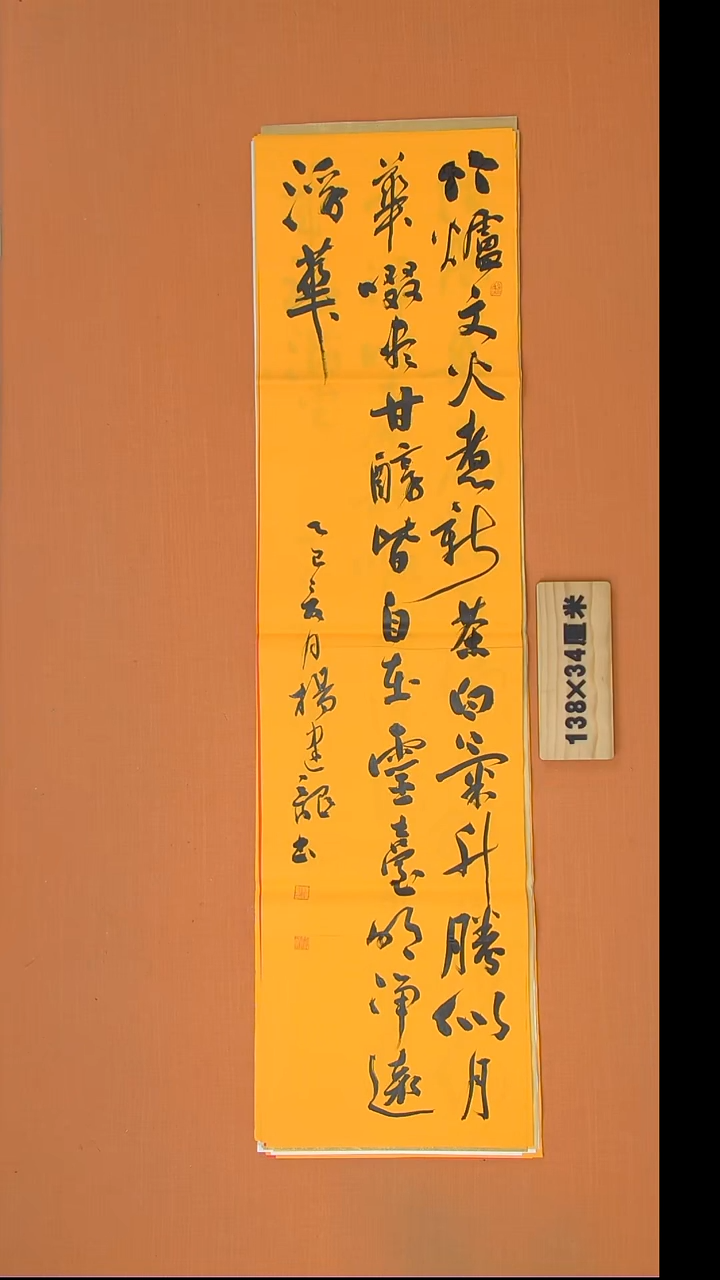 竹爐文火煮新茶白氣升騰似月
華啜盡甘醇皆自在靈臺明淨遠
浮華
乙巳六月楊建書
138X34厘米